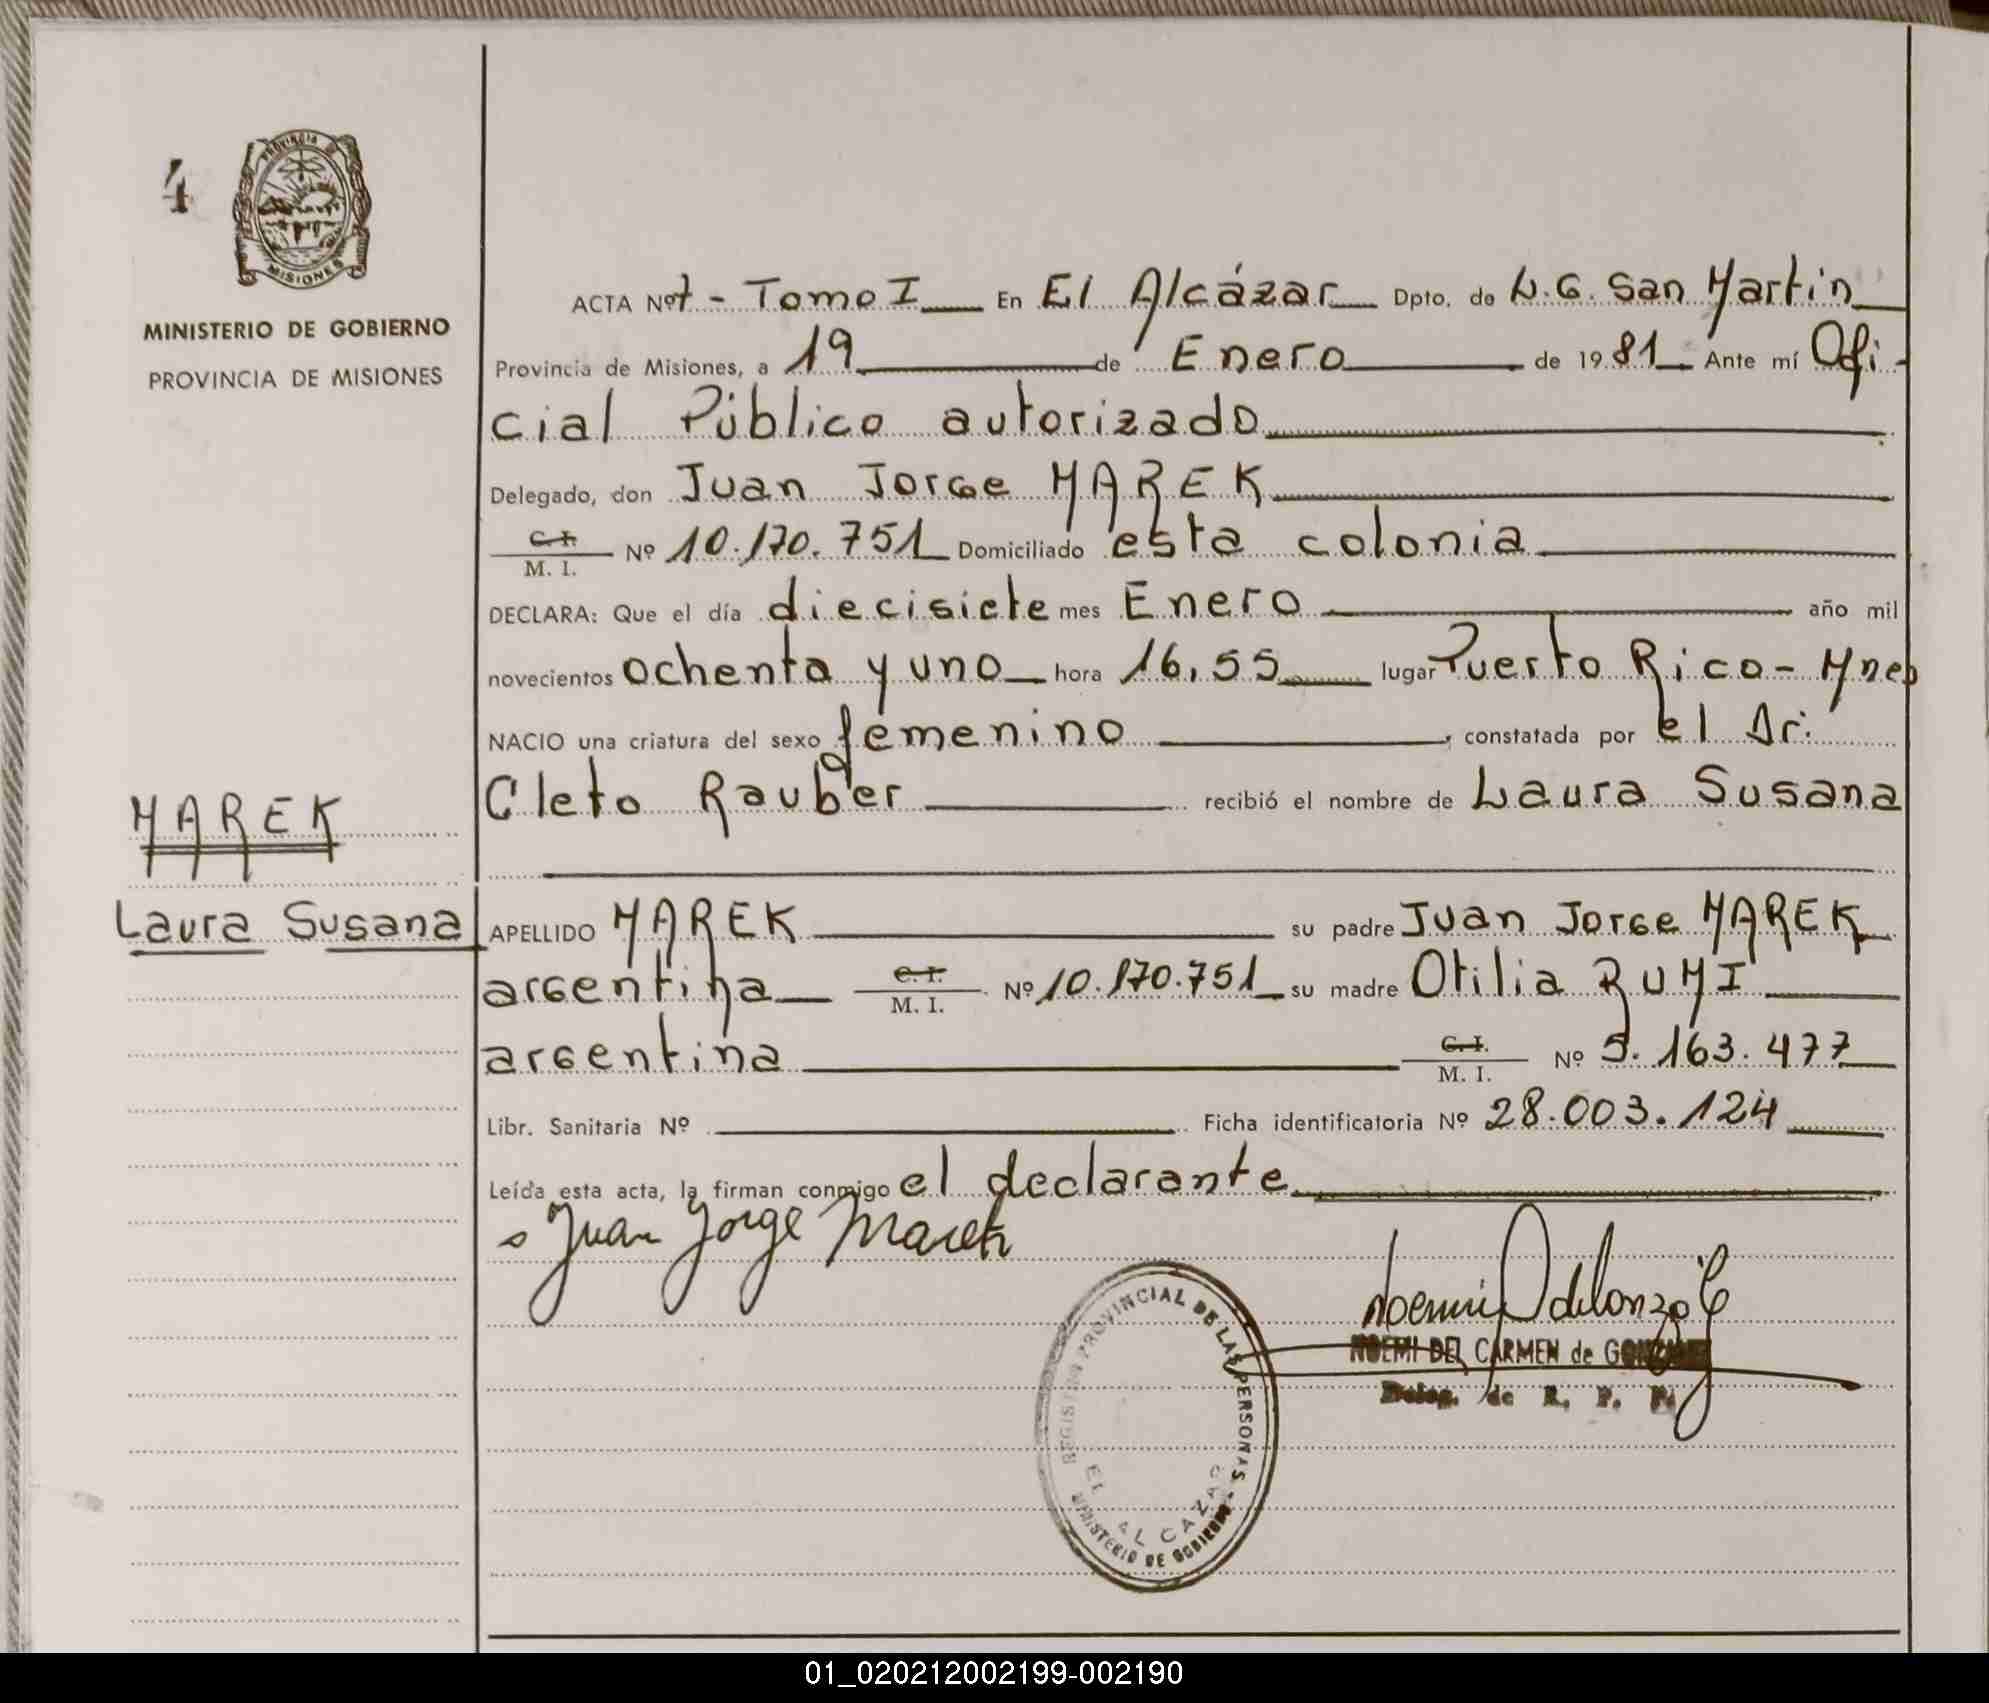 4
PROVINCIA DE
MISIONES
MINISTERIO DE GOBIERNO
PROVINCIA DE MISIONES
ACTA Nº 7 - Tomo I En El Alcázar Dpto. de L.G. San Martin
Provincia de Misiones, a 19 de Enero de 1981 Ante mí Ofi-
cial Público autorizado
Delegado, don Juan Jorge MAREK
C. I.
M. I. Nº 10.170.751 Domiciliado esta colonia
DECLARA: Que el día diecisiete mes Enero año mil
novecientos ochenta y uno hora 16,55 lugar Puerto Rico - Mnes
NACIO una criatura del sexo femenino, constatada por el Dr.
Cleto Rauber recibió el nombre de Laura Susana
MAREK
Laura Susana
APELLIDO MAREK su padre Juan Jorge MAREK
argentina C. I. M. I. Nº 10.170.751 su madre Otilia RUMI
argentina C. I. M. I. Nº 5.163.477
Libr. Sanitaria Nº Ficha identificatoria Nº 28.003.124
Leída esta acta, la firman conmigo el declarante
Juan Jorge Marek
NOEMI DEL CARMEN de
Deleg. de R. P. P.
REGISTRO PROVINCIAL DE LAS PERSONAS
EL ALCAZAR
MINISTERIO DE GOBIERNO
01_020212002199-002190